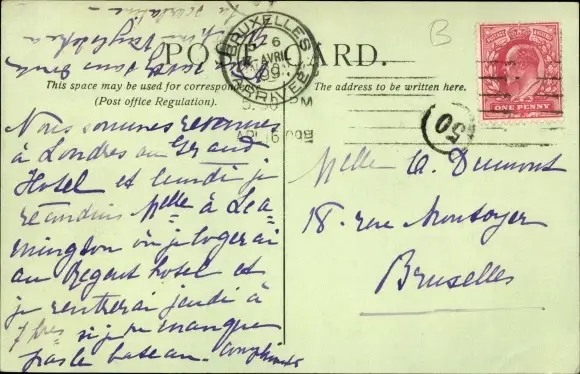 POST CARD.
This space may be used for correspondence
(Post office Regulation).
The address to be written here.
BRUXELLES
6
AVRIL
09
ARRIVEE
ONE PENNY
B
50
Nous sommes revenues
à Londres au Grand
Hotel et lundi je
Melle à Lea-
mington où je logerai
au Regent hotel et
je rentrerai jeudi à
7 hres si je ne manque
pas le bateau. Compliments
Melle A. Dumont
18. rue Montoyer
Bruxelles